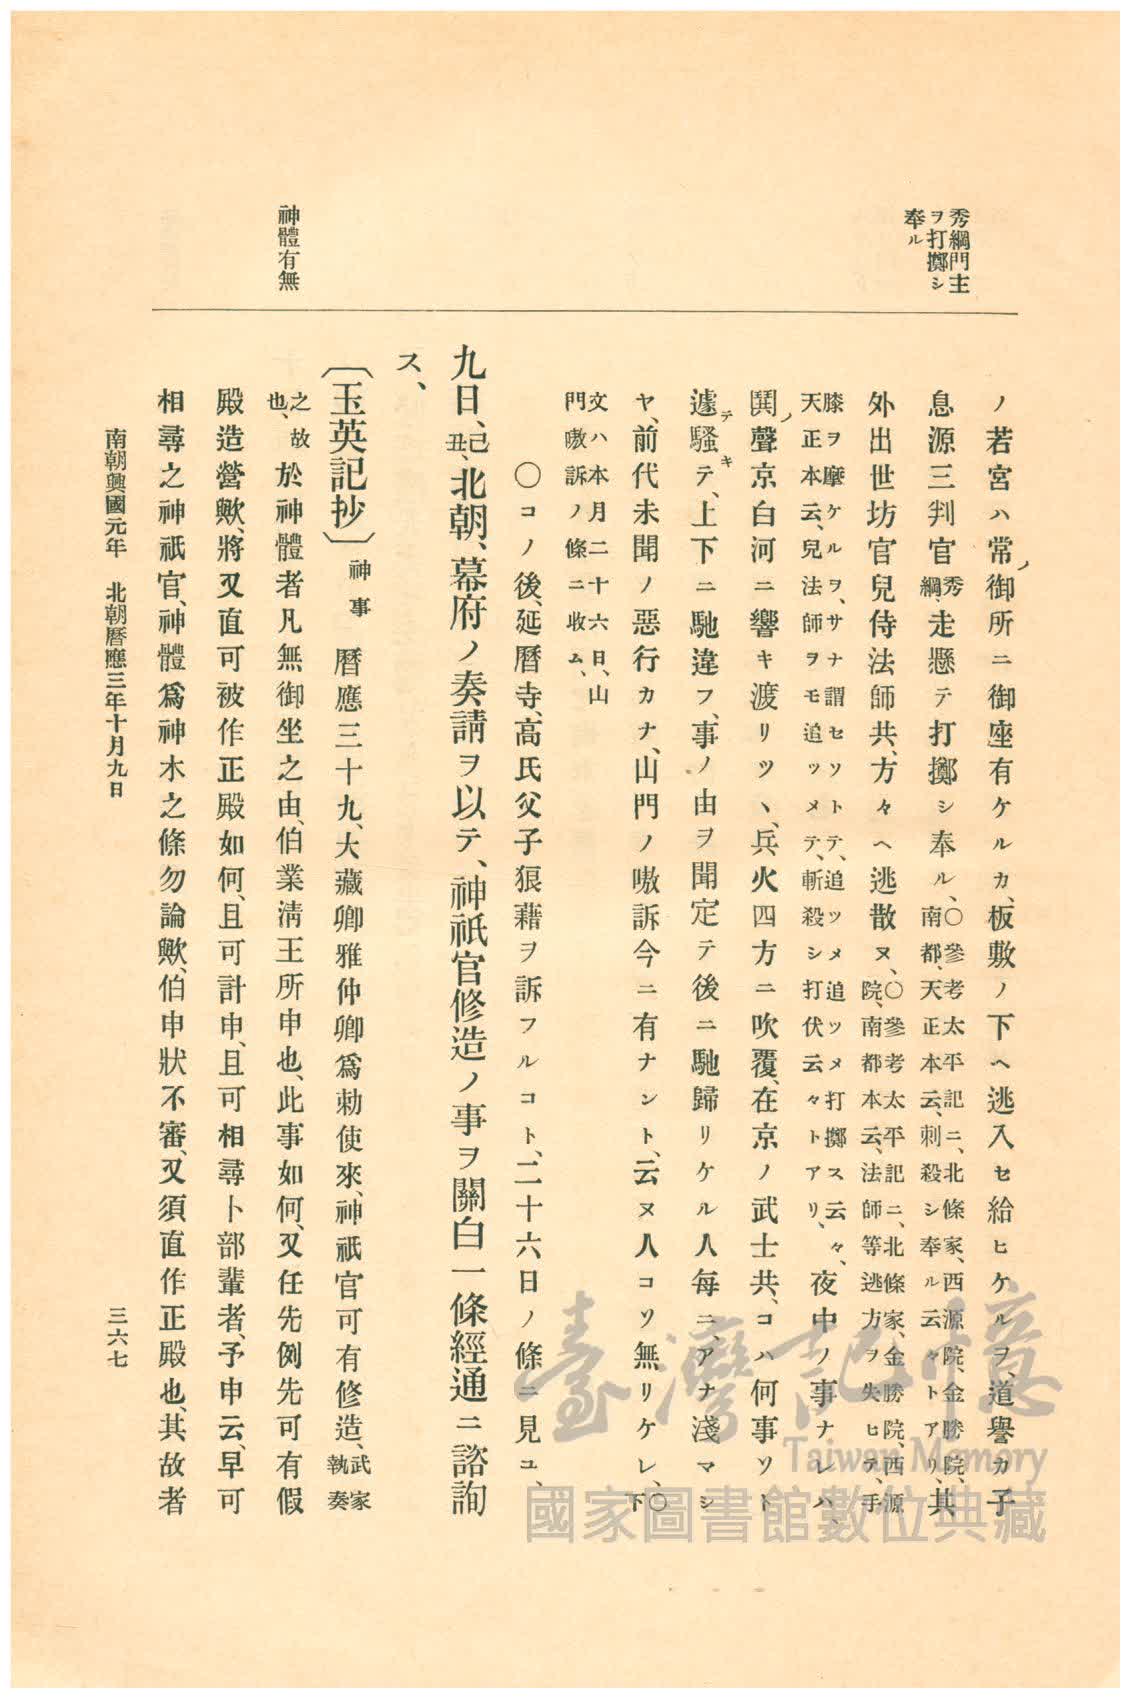 秀綱門主
ヲ打擲シ
奉ル
神體有無
ノ若宮ハ常ノ御所ニ御座有ケルカ、板敷ノ下ヘ逃入セ給ヒケルヲ、道譽カ子
息源三判官秀綱、走懸テ打擲シ奉ル、○參考太平記ニ、北條家、西源院、金勝院、南都、天正本云、刺殺シ奉ル云々トアリ、其
外出世坊官兒侍法師共、方々ヘ逃散ヌ、○參考太平記ニ、北條家、金勝院、西源院、南都本云、法師等逃方ヲ失ヒテ、手
膝ヲ摩ケルヲ、サナ謂セソトテ、追ツメ追ツメ打擲ス云々、天正本云、兒法師ヲモ追ッメテ、斬殺シ打伏云々トアリ、夜中ノ事ナレハ、
鬨ノ聲京白河ニ響キ渡リツヽ、兵火四方ニ吹覆、在京ノ武士共、コハ何事ソト
遽テ騷キテ、上下ニ馳違フ、事ノ由ヲ聞定テ後ニ馳歸リケル人每ニ、アナ淺マシ
ヤ、前代未聞ノ惡行カナ、山門ノ嗷訴今ニ有ナント、云ヌ人コソ無リケレ、○下
文ハ本月二十六日、山
門嗷訴ノ條ニ收ム、
○コノ後、延曆寺、高氏父子狼藉ヲ訴フルコト、二十六日ノ條ニ見ユ、
九日、己丑、北朝、幕府ノ奏請ヲ以テ、神祇官修造ノ事ヲ關白一條經通ニ諮詢
ス、
〔玉英記抄〕神事 曆應三十九、大藏卿雅仲卿爲勅使來、神祇官可有修造、武家執奏
之故也、於神體者凡無御坐之由、伯業淸王所申也、此事如何、又任先例先可有假
殿造營歟、將又直可被作正殿如何、且可計申、且可相尋卜部輩者、予申云、早可
相尋之神祇官、神體爲神木之條勿論歟、伯申狀不審、又須直作正殿也、其故者
南朝興國元年 北朝曆應三年十月九日
三六七
臺灣記憶
Taiwan Memory
國家圖書館數位典藏